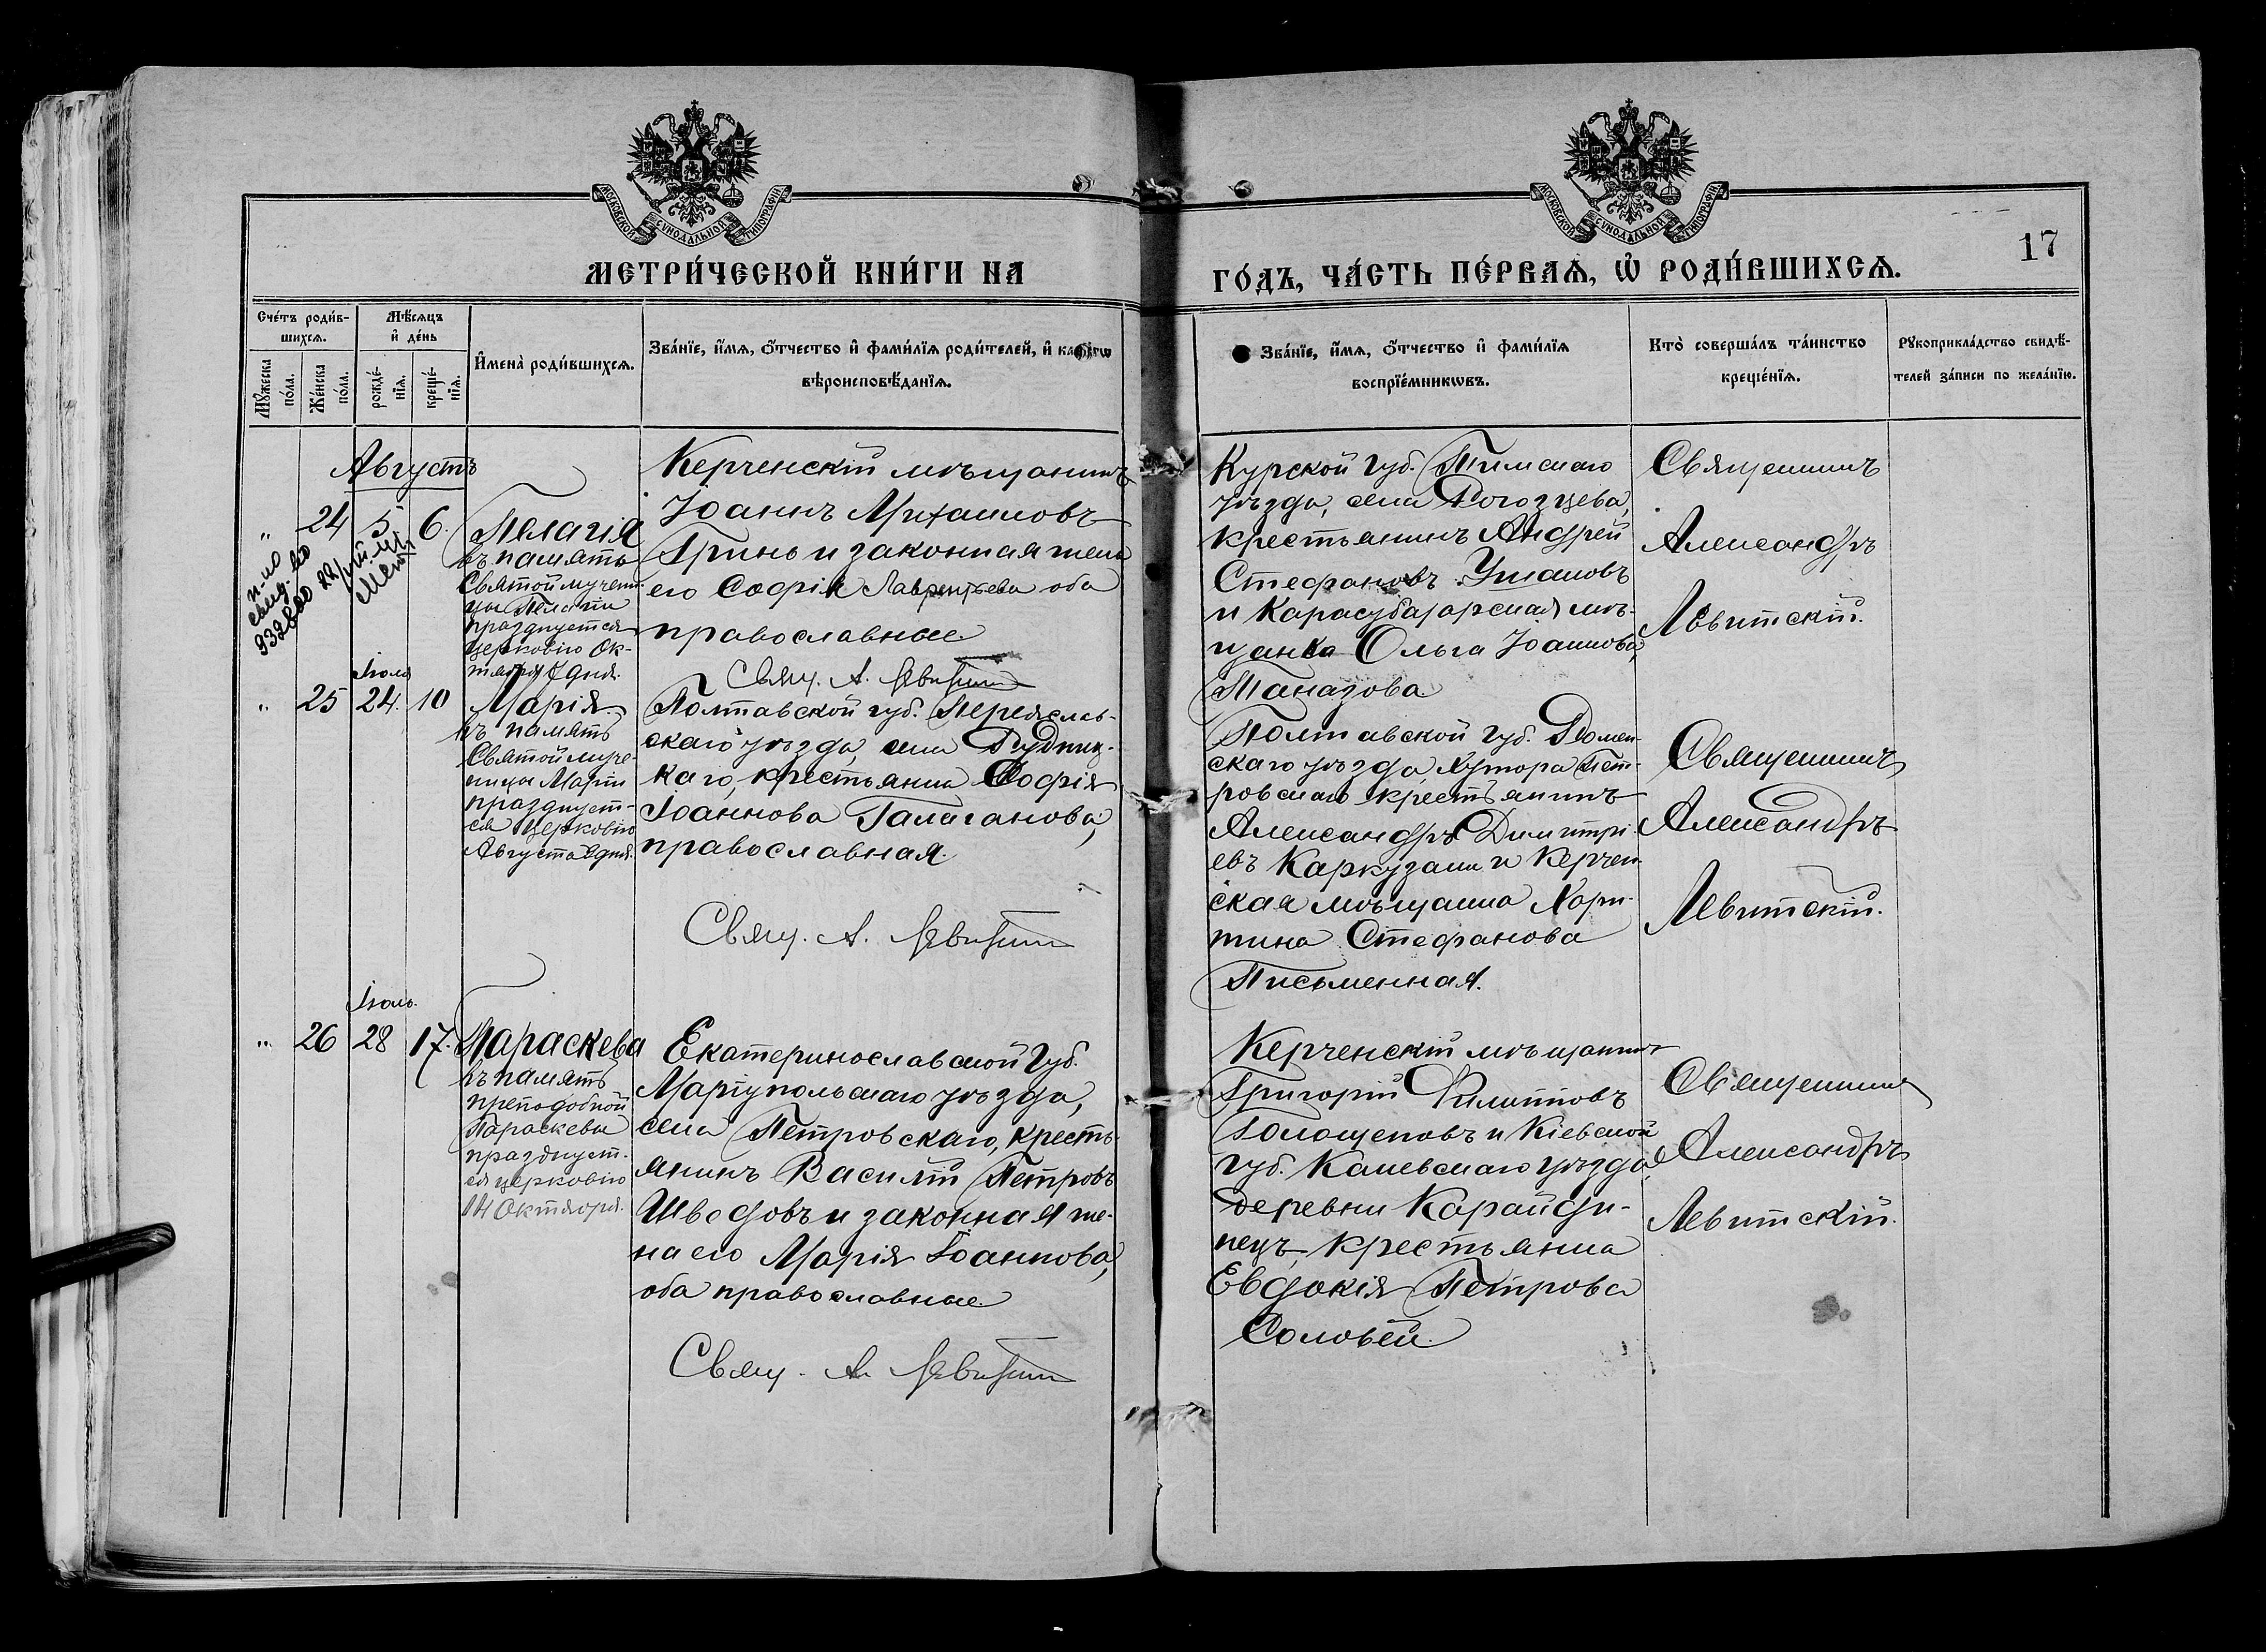 МОСКОВСКОЙ СѴНОДАЛЬНОЙ ТИПОГРАФІИ
МОСКОВСКОЙ СѴНОДАЛЬНОЙ ТИПОГРАФІИ
17
МЕТРИ́ЧЕСКОЙ КНИ́ГИ НА
ГО́ДЪ, ЧА́СТЬ ПЕ́РВАѦ, Ѡ҆ РОДИ́ВШИХСѦ.
Сче́тъ роди́в-
шихсѧ.
Мꙋ́жеска
по́ла.
Же́нска
по́ла.
Мѣ́сѧцъ
и҆ де́нь
рожде́-
нїѧ.
креще́-
нїѧ.
И҆мена̀ роди́вшихсѧ.
Зва́нїе, и҆́мѧ, ѻ҆́тчество и҆ фами́лїѧ роди́телей, и҆ како́гѡ
вѣроисповѣ́данїѧ.
Зва́нїе, и҆́мѧ, ѻ҆́тчество и҆ фами́лїѧ
воспрїе́мникѡвъ.
Кто̀ соверша́лъ та́инство
креще́нїѧ.
Рꙋкоприкла́дство свидѣ́-
телей за́писи по жела́нїю.
Августъ
„ 24 5. 6.
Пелагія
въ память
Святой мучени-
цы Пелагіи
празднуется
церковію Ок-
тября 7 дня.
Керченскій мѣщанинъ
Іоаннъ Михаиловъ
Гринь и законная жена
его Софія Лаврентьева оба
православные
Свящ. А. Левитскій
Курской губ. Тимскаго
уѣзда, села Рогозцева,
крестьянинъ Андрей
Стефановъ Ушаковъ
и Карасубазарская мѣ-
щанка Ольга Іоаннова
Танагова
Священникъ
Александръ
Левитскій.
Іюля
„ 25 24. 10
Марія
въ память
Святой муче-
ницы Маріи
празднует-
ся церковію
Августа дня.
Полтавской губ. Переяслав-
скаго уѣзда, села Рудниц-
каго, крестьянка Софія
Іоаннова Галаганова,
православная.
Свящ. А. Левитскій
Полтавской губ. Ромен-
скаго уѣзда, хутора Пет-
ровскаго крестьянинъ
Александръ Димитрі-
евъ Каркузаш и Керчен-
ская мѣщанка Хари-
тина Стефанова
Письменная.
Священникъ
Александръ
Левитскій.
Іюль.
„ 26 28 17.
Параскева
въ память
преподобной
Параскевы
празднует-
ся церковію
14 Октября.
Екатеринославской губ.
Маріупольскаго уѣзда,
села Петровскаго, кресть-
янинъ Василій Петровъ
Шведовъ и законная же-
на его Марія Іоаннова,
оба православные
Свящ. А. Левитскій
Керченскій мѣщанинъ
Григорій Филипповъ
Голощеповъ и Кіевской
губ. Каневскаго уѣзда,
деревни Карайди-
нецъ, крестьянка
Евдокія Петрова
Соловей.
Священникъ
Александръ
Левитскій.